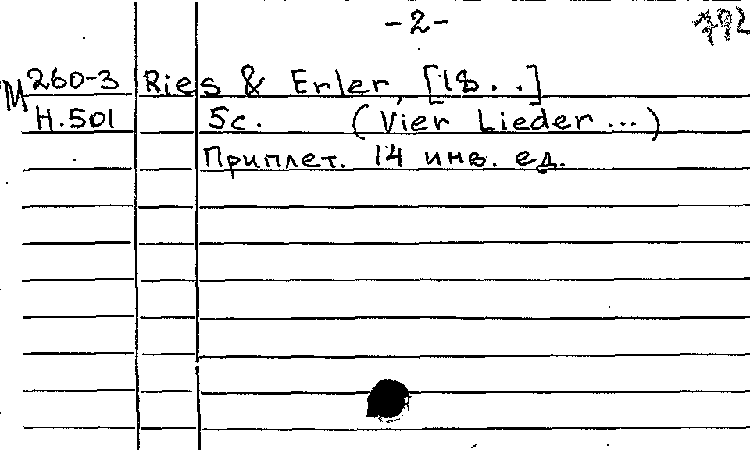 -2-
792
М 260-3 Ries & Erler, [18. .]
Н.501 5с. (Vier Lieder...)
Приплет. 14 инв. ед.